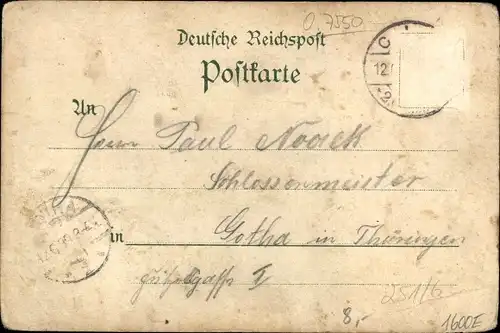 0.7550
Deutsche Reichspost
Postkarte
C
12.
An
Herrn Paul Noack
Schlossermeister
in Gotha in Thüringen
I
251/6
8,-
1600E